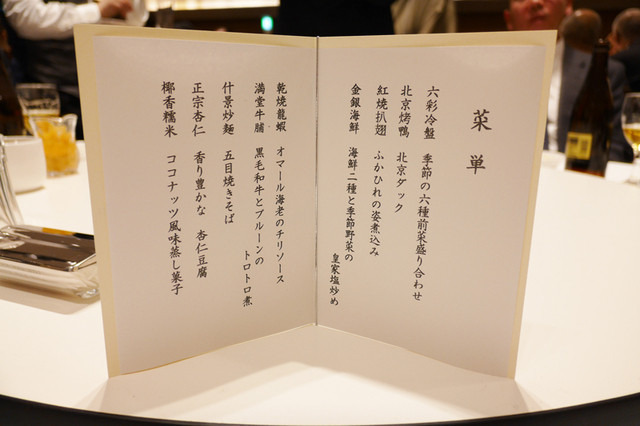 菜単
六彩冷盤 季節の六種前菜盛り合わせ
北京烤鴨 北京ダック
紅焼扒翅 ふかひれの姿煮込み
金銀海鮮 海鮮二種と季節野菜の
皇家塩炒め
乾焼龍蝦 オマール海老のチリソース
満堂牛腩 黒毛和牛とプルーンの
トロトロ煮
什景炒麺 五目焼きそば
正宗杏仁 香り豊かな 杏仁豆腐
椰香糯米 ココナッツ風味蒸し菓子